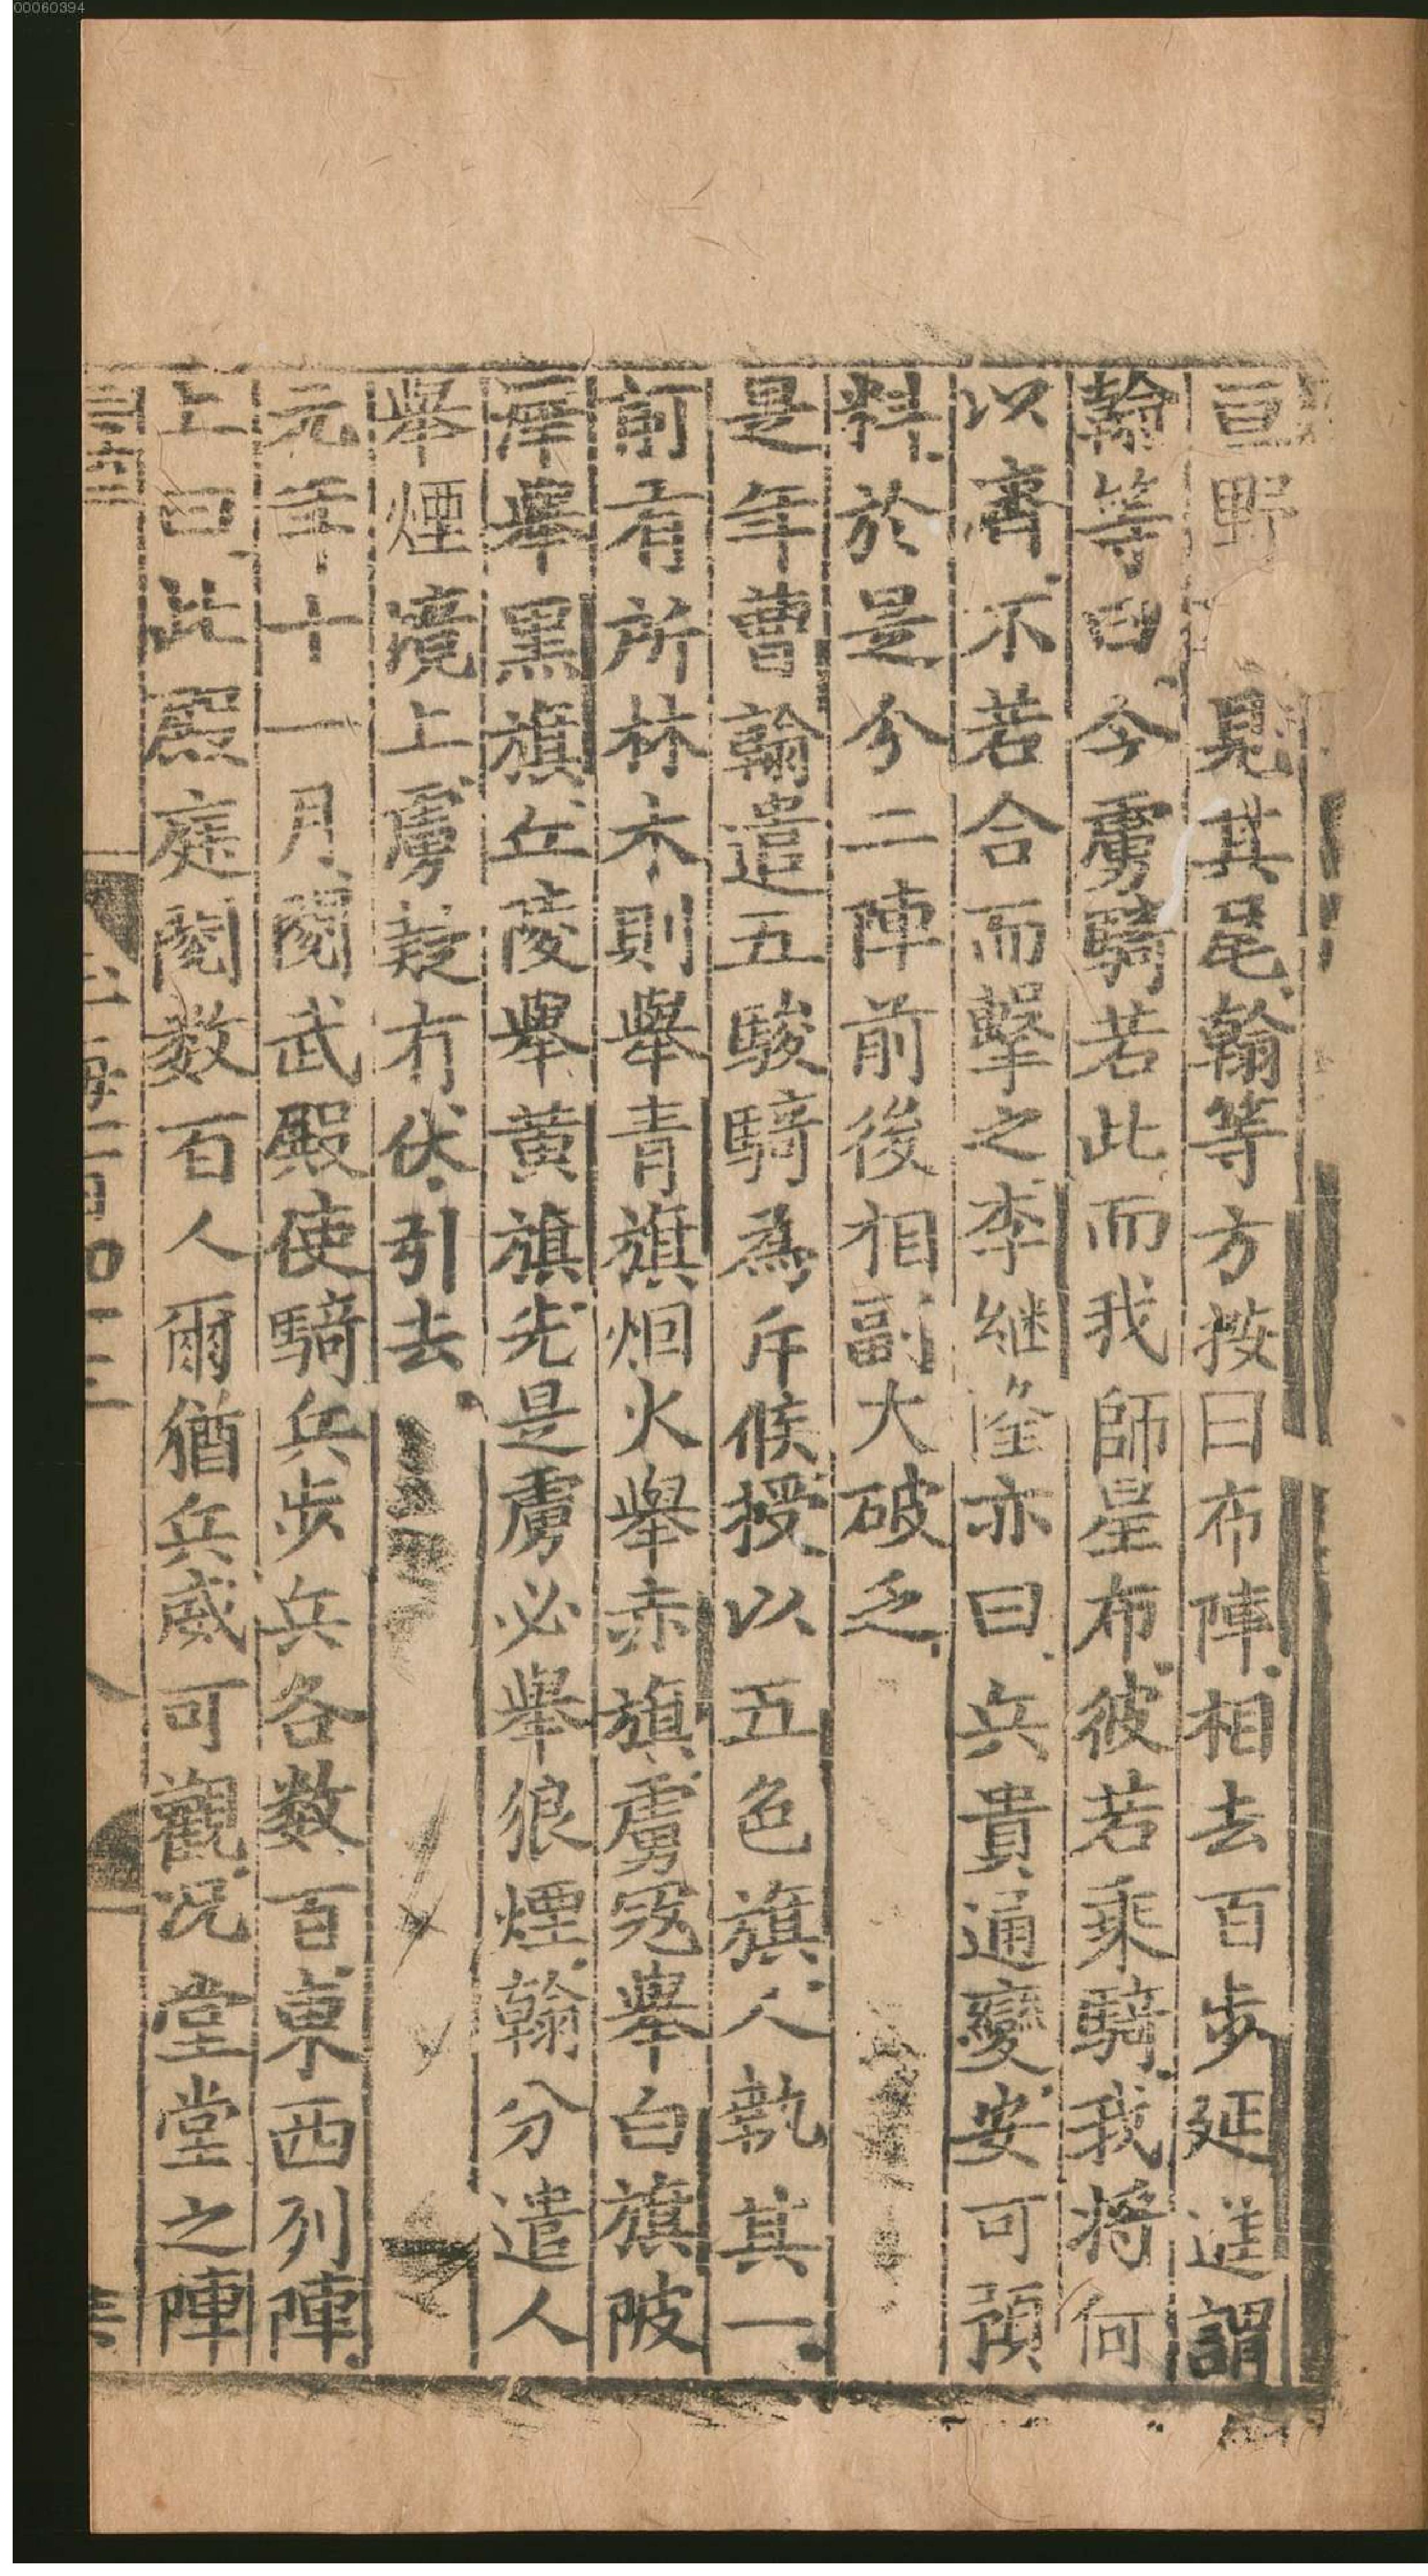 00060394
亘野見其尾翰等方按曰布陣相去百步延進謂
翰等曰今虜騎若此而我師星布彼若乘騎我將何
以齊不若合而擊之李継隆亦曰兵貴通變安可預
料於是分二陣前後相副大破之
是年曹翰遣五駿騎為斥候授以五色旗人執其一
前有所林木則舉青旗烟火舉赤旗虜寇舉白旗陂
澤舉黑旗丘陵舉黃旗先是虜必舉狼煙翰分遣人
舉煙境上虜疑有伏引去
元年十一月閱武殿使騎兵步兵各数百東西列陣
上曰此殿庭閱数百人爾猶兵威可觀况堂堂之陣